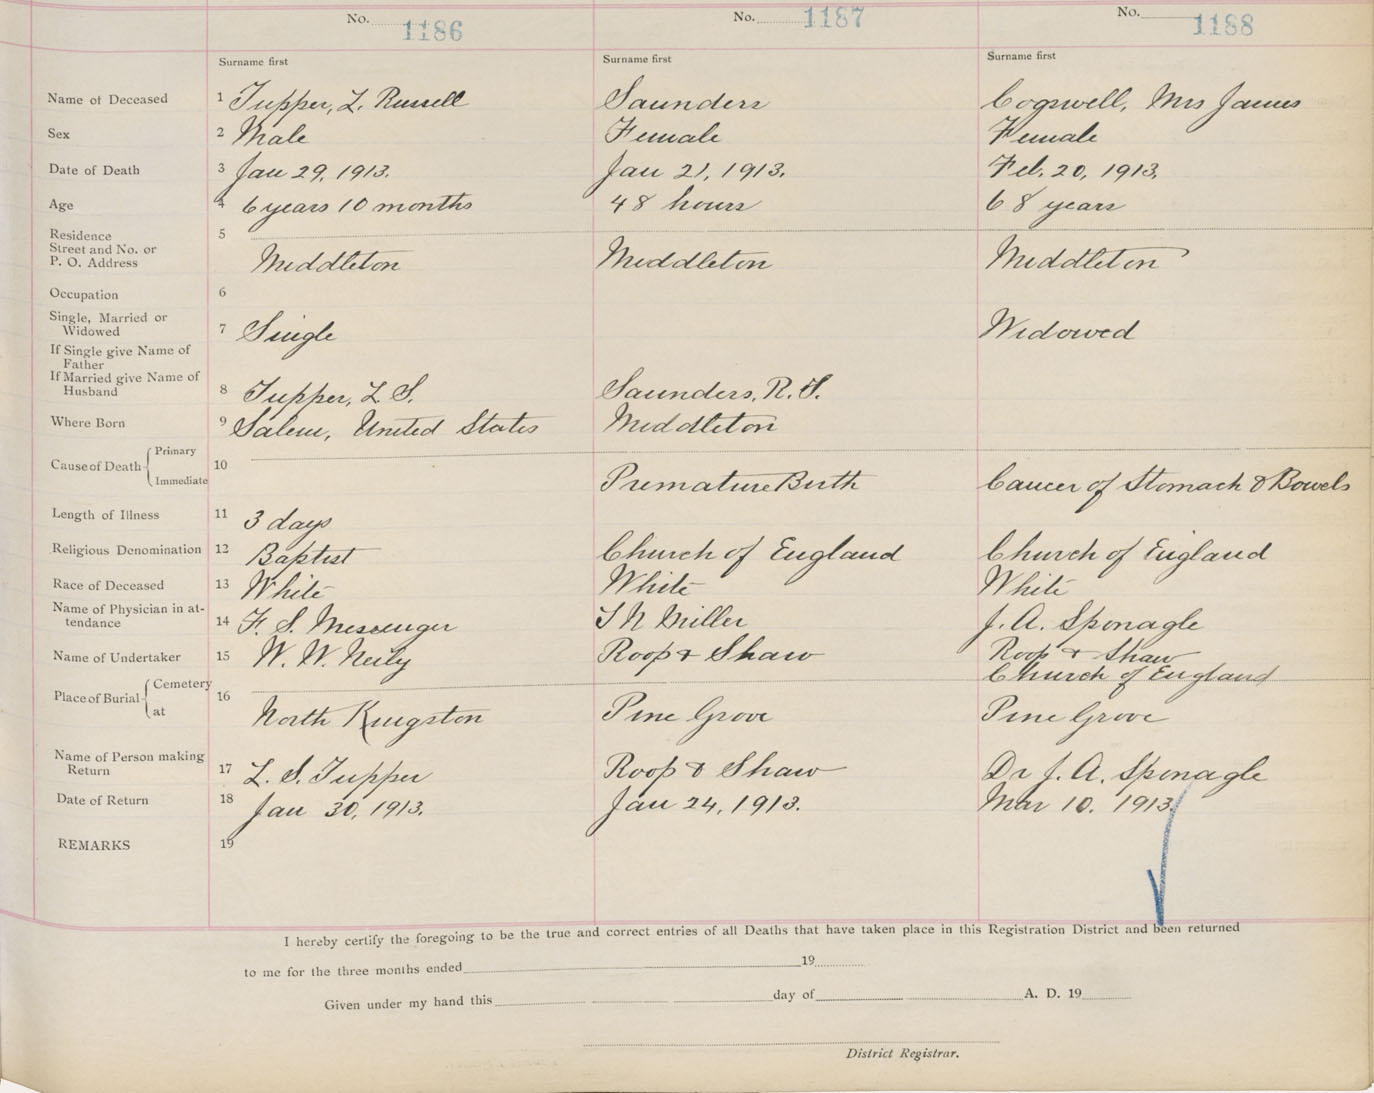 No. 1186 No. 1187 No. 1188
Surname first Surname first Surname first
Name of Deceased 1 Tupper, L. Russell Saunders Cogswell, Mrs James
Sex 2 Male Female Female
Date of Death 3 Jan 29, 1913. Jan 21, 1913. Feb. 20, 1913.
Age 4 6 years 10 months 48 hours 68 years
Residence 5
Street and No. or
P. O. Address Middleton Middleton Middleton
Occupation 6
Single, Married or
Widowed 7 Single Widowed
If Single give Name of
Father
If Married give Name of
Husband 8 Tupper, L S. Saunders, R. S.
Where Born 9 Salem, United States Middleton
Primary
Cause of Death 10
Immediate Premature Birth Cancer of Stomach & Bowels
Length of Illness 11 3 days
Religious Denomination 12 Baptist Church of England Church of England
Race of Deceased 13 White White White
Name of Physician in at-
tendance 14 F. S. Messenger S N Miller J. A. Sponagle
Name of Undertaker 15 W. W. Neily Roop & Shaw Roop & Shaw
Cemetery Church of England
Place of Burial 16
at North Kingston Pine Grove Pine Grove
Name of Person making
Return 17 L. S. Tupper Roop & Shaw Dr J. A. Sponagle
Date of Return 18 Jan 30, 1913. Jan 24, 1913. Mar 10. 1913.
REMARKS 19
I hereby certify the foregoing to be the true and correct entries of all Deaths that have taken place in this Registration District and been returned
to me for the three months ended 19
Given under my hand this day of A. D. 19
District Registrar.